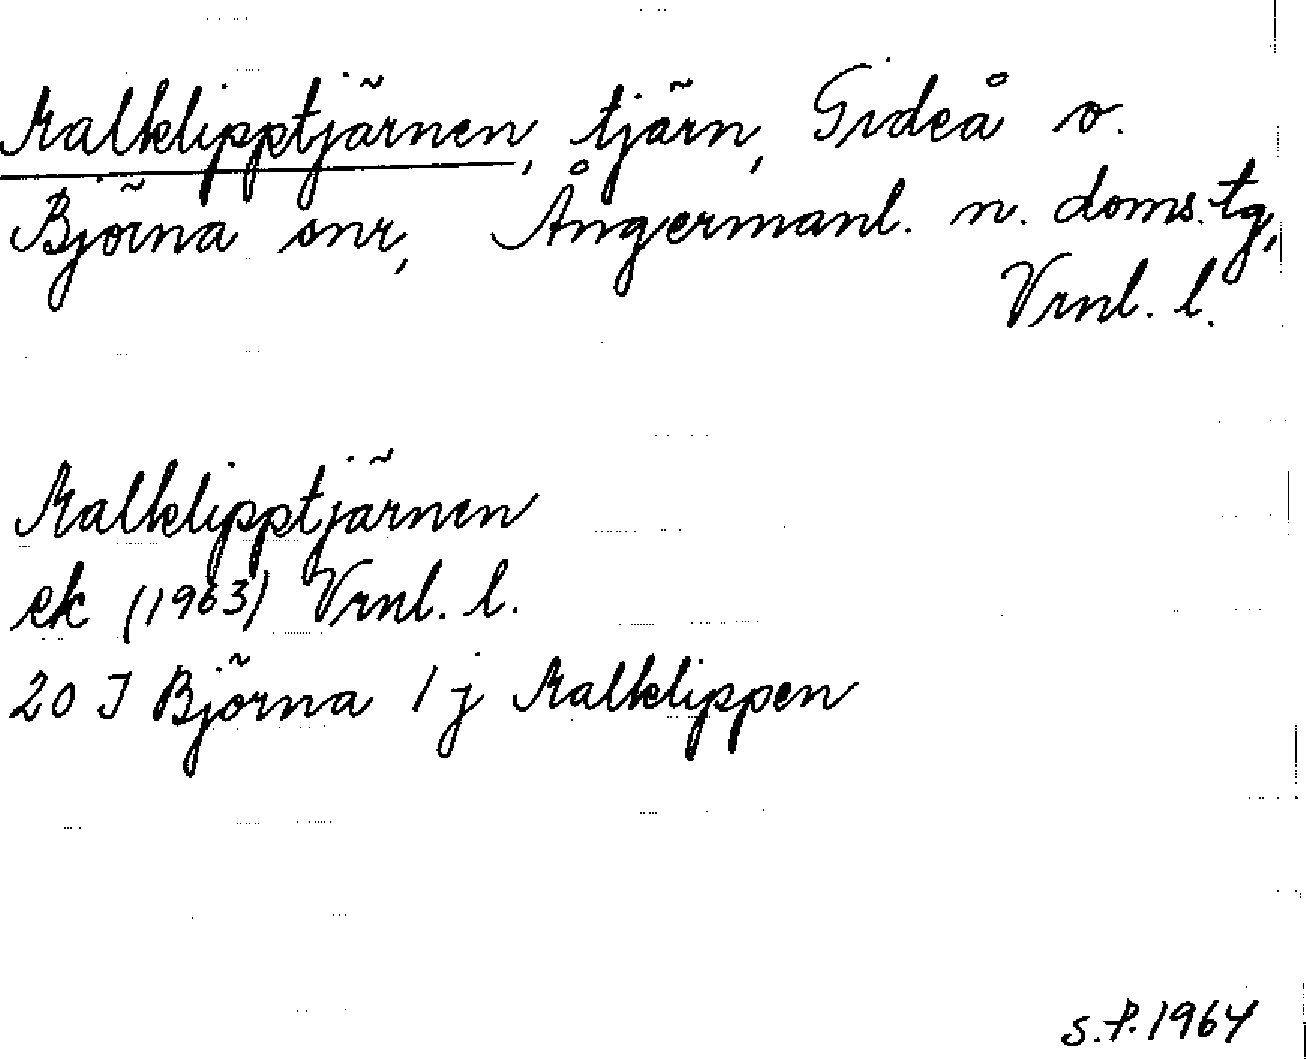 Kalklipptjärnen, tjärn, Gideå o.
Björna snr, Ångermanl. n. doms.tg,
Vrnl. l.
Kalklipptjärnen
ek (1963) Vrnl. l.
20 I Björna 1 j Kalklippen
S.P. 1964